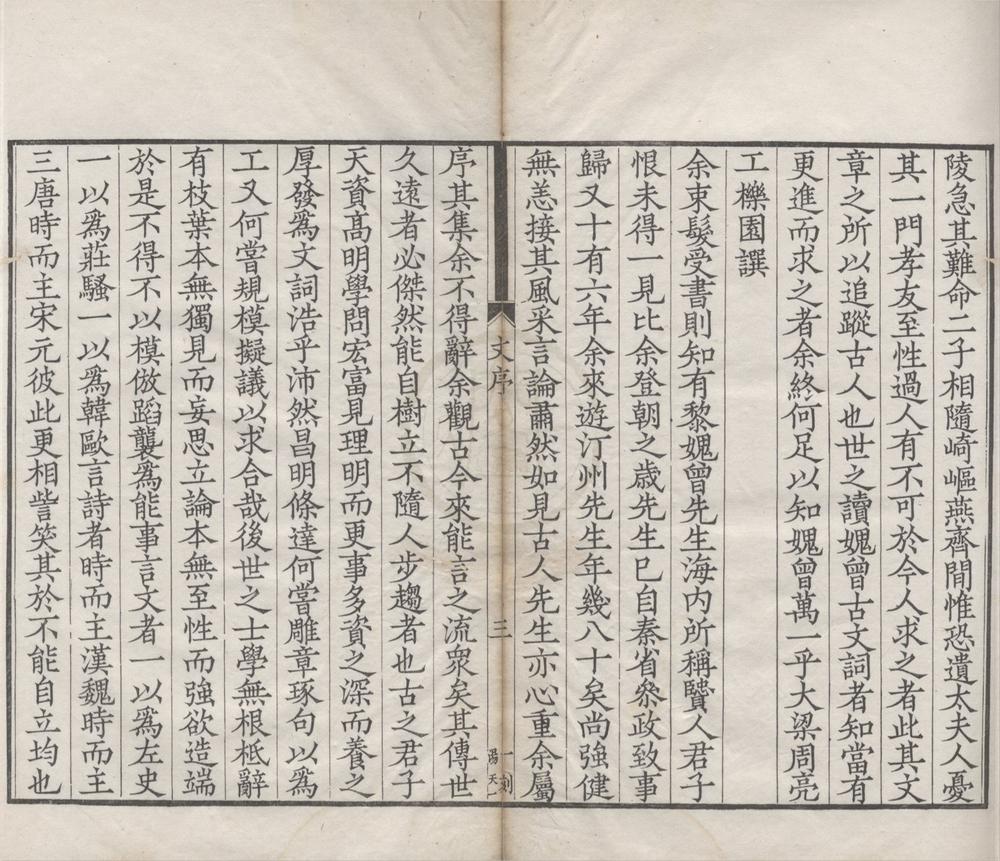 陵急其難命二子相隨崎嶇燕齊閒惟恐遺太夫人憂
其一門孝友至性過人有不可於今人求之者此其文
章之所以追蹤古人也世之讀媿曾古文詞者知當有
更進而求之者余終何足以知媿曾萬一乎大梁周亮
工櫟園譔
余束髮受書則知有黎媿曾先生海內所稱贒人君子
恨未得一見比余登朝之歳先生已自秦省叅政致事
歸又十有六年余來遊汀州先生年幾八十矣尚強健
無恙接其風采言論肅然如見古人先生亦心重余屬
文序
三
序其集余不得辭余觀古今來能言之流衆矣其傳世
久遠者必傑然能自樹立不隨人步趨者也古之君子
天資髙明學問宏富見理明而更事多資之深而養之
厚發爲文詞浩乎沛然昌明條達何嘗雕章琢句以爲
工又何嘗規模擬議以求合哉後世之士學無根柢辭
有枝葉本無獨見而妄思立論本無至性而強欲造端
於是不得不以模倣蹈襲爲能事言文者一以爲左史
一以爲莊騷一以爲韓歐言詩者時而主漢魏時而主
三唐時而主宋元彼此更相訾笑其於不能自立均也